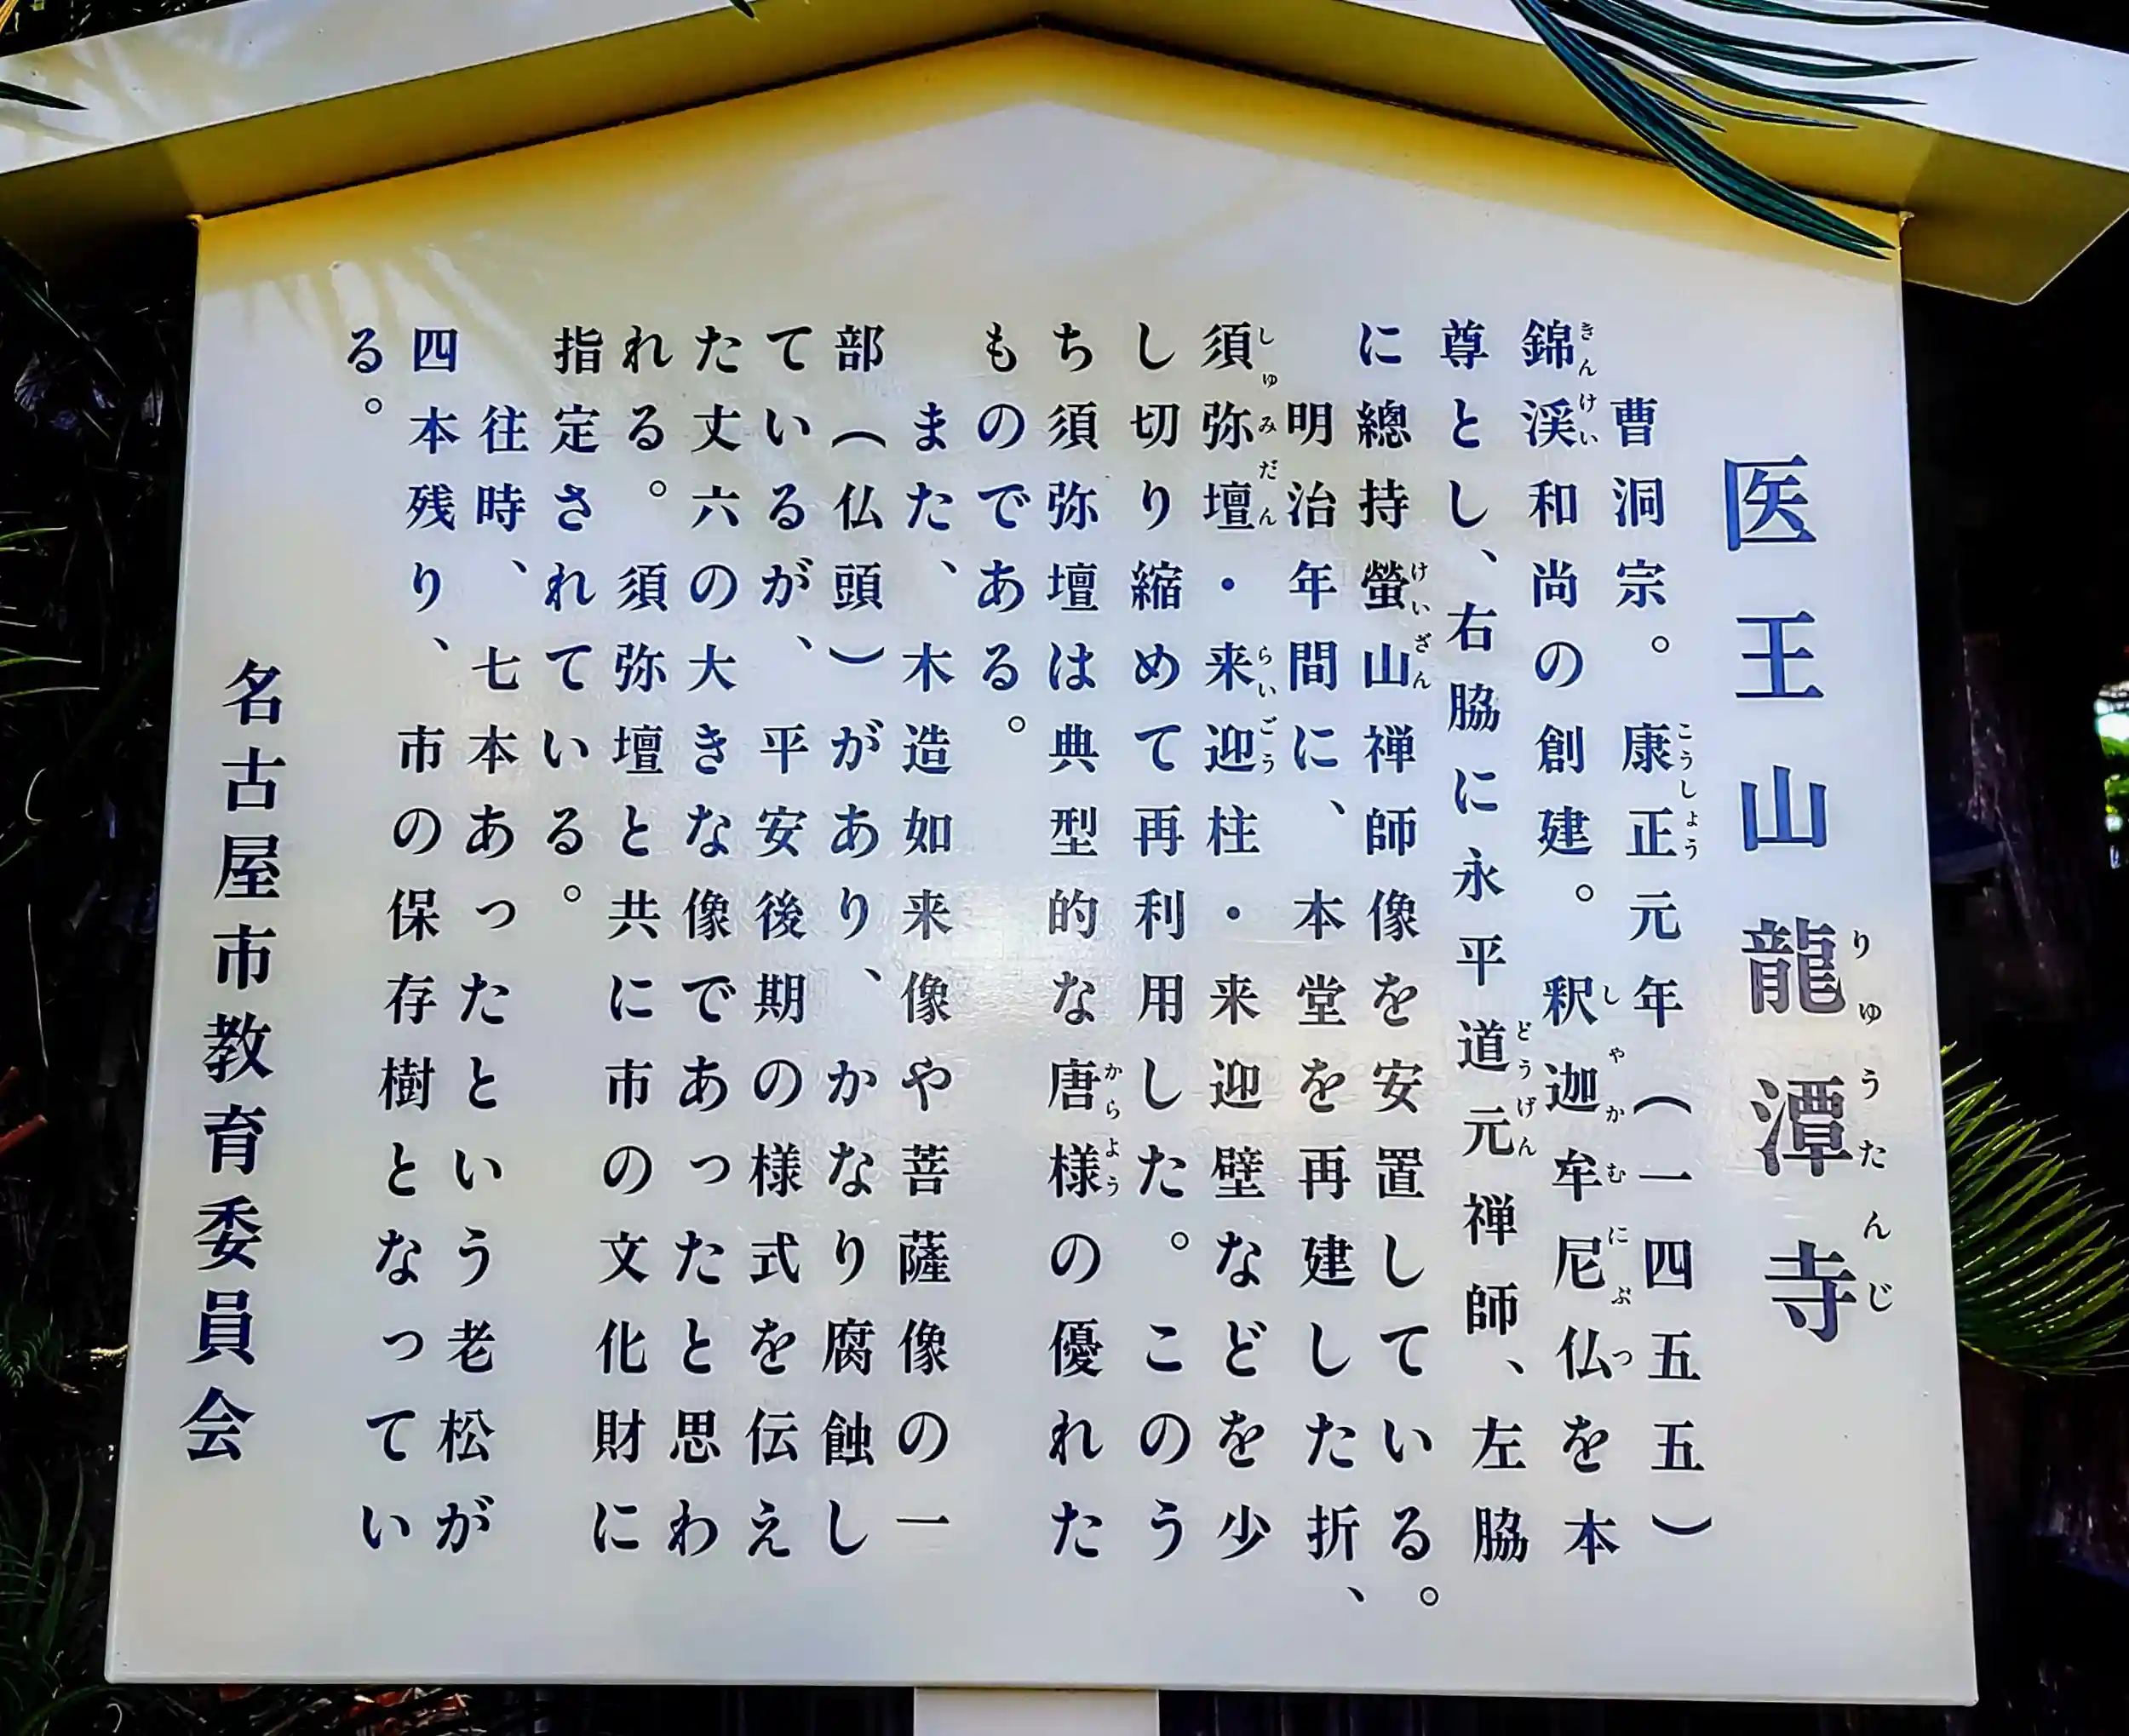 医王山龍潭寺
曹洞宗。康正元年（一四五五）
錦渓和尚の創建。釈迦牟尼仏を本
尊とし、右脇に永平道元禅師、左脇
に總持螢山禅師像を安置している。
明治年間に、本堂を再建した折、
須弥壇・来迎柱・来迎壁などを少
し切り縮めて再利用した。このう
ち須弥壇は典型的な唐様の優れた
ものである。
また、木造如来像や菩薩像の一
部（仏頭）があり、かなり腐蝕し
ているが、平安後期の様式を伝え
た丈六の大きな像であったと思わ
れる。須弥壇と共に市の文化財に
指定されている。
往時、七本あったという老松が
四本残り、市の保存樹となってい
る。
名古屋市教育委員会